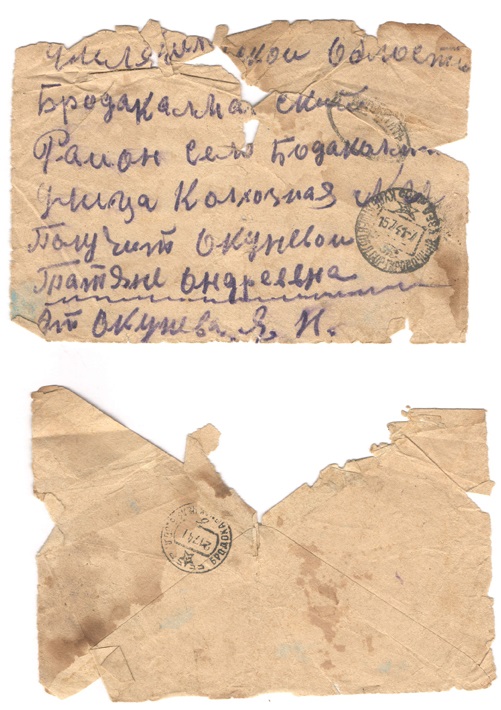 Челябинской Области
Бродакалмак ский
Район село Бодакалмак
Улица Колхозная
Получит Окуневой
Татяне Ондреевна
От Окунева, Я. И.
БРОДОКАЛМАК